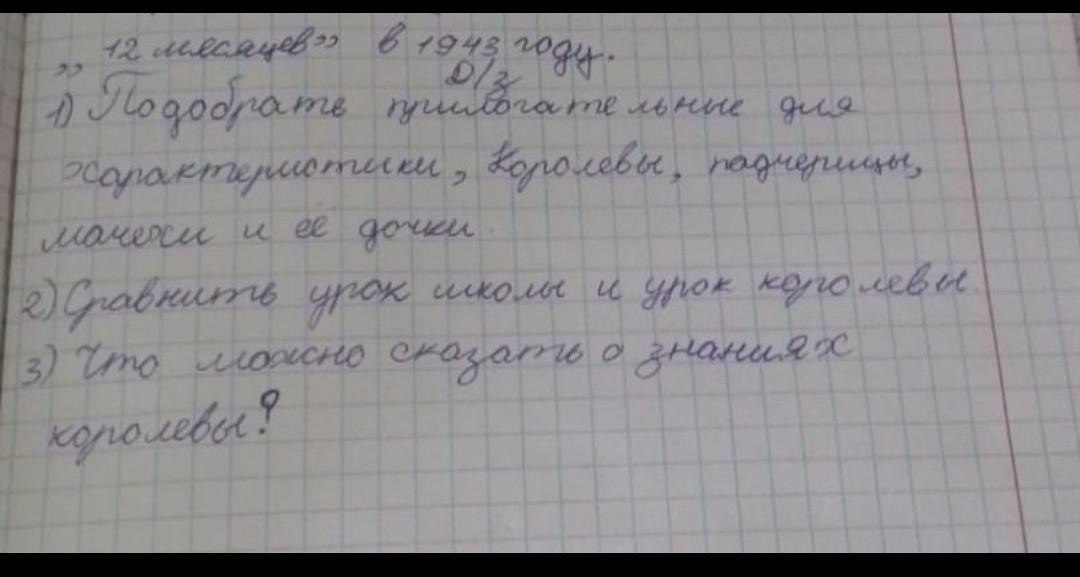 „ 12 месяцев» в 1943 году.
Д/з
1) Подобрать прилогательные для
характеристики, Королевы, падчерицы,
мачехи и её дочки.
2) Сравнить урок школы и урок королевы.
3) Что можно сказать о знаниях
королевы?